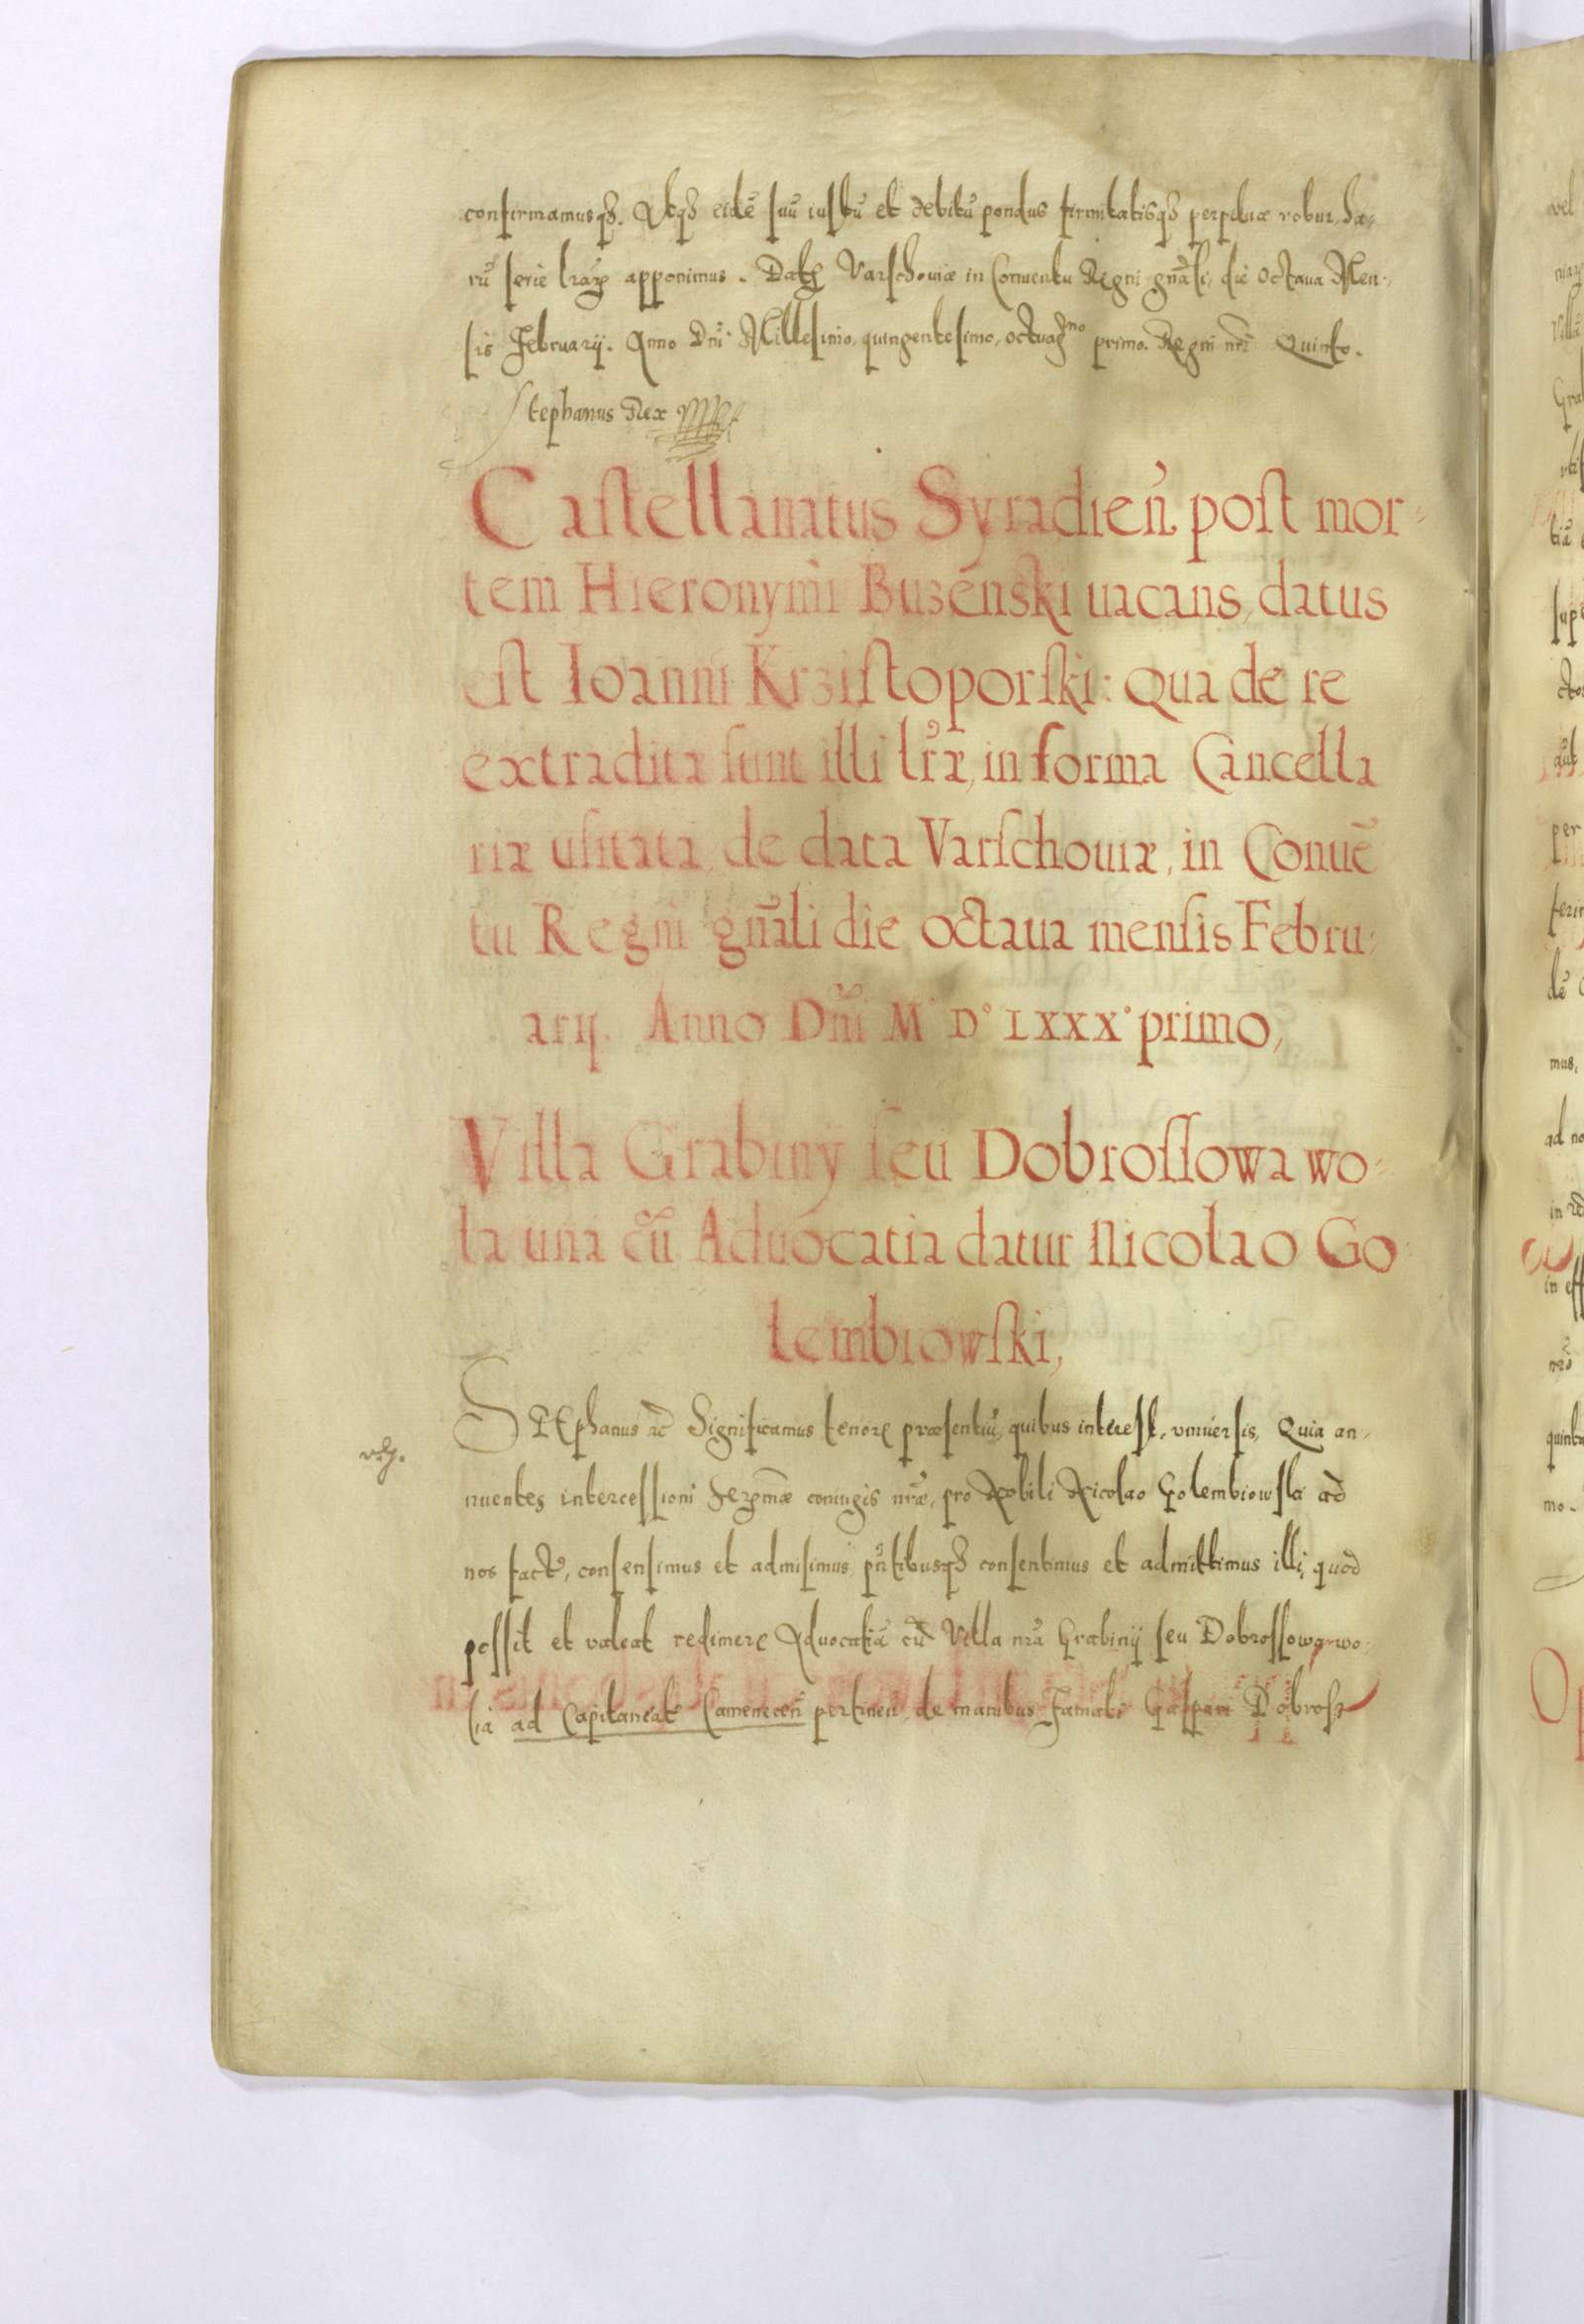 confirmamusqȝ. Atqȝ eidē suū iustū et debitū pondus firmitatisqȝ perpetuæ robur ha-
rū serie lrāꝝ apponimus. Datꝭ Varschoviæ in Conuentu Regni gnāli, die Octaua Men-
sis Februarij. Anno Dnī Millesimo, quingentesimo, octuagno primo. Regni nrī Quinto.
Stephanus Rex
Castellanatus Syradień post mor-
tem Hieronymi Buzenski uacans, datus
est Ioanni Krzistoporski: qua de re
extraditæ sunt illi lræ, in forma Cancella
riæ usitata, de data Varschouiæ, in Conuē
tu Regni gnāli die octaua mensis Febru-
arij. Anno Dnī M° D° LXXX° primo,
Villa Grabiny seu Dobrossowa wo-
la una cū Aduocatia datur Nicolao Go-
lembiowski,
STEphanus etc Significamus tenore præsentiū, quibus interest, vniuersis, Quia an-
nuentes intercessioni Serꝫmæ coniugis nrǣ, pro Nobili Nicolao Golembiowski ad
nos factæ, consensimus et admisimus, pntibusqȝ consentimus et admittimus illi, quod
possit et valeat redimere Aduocatiā cū Villa nrā Grabinij seu Dobrossowa wo-
lia ad Capitaneat Camenecen̄ pertinen̄, de manibus Famati Gaspari Dobrosz